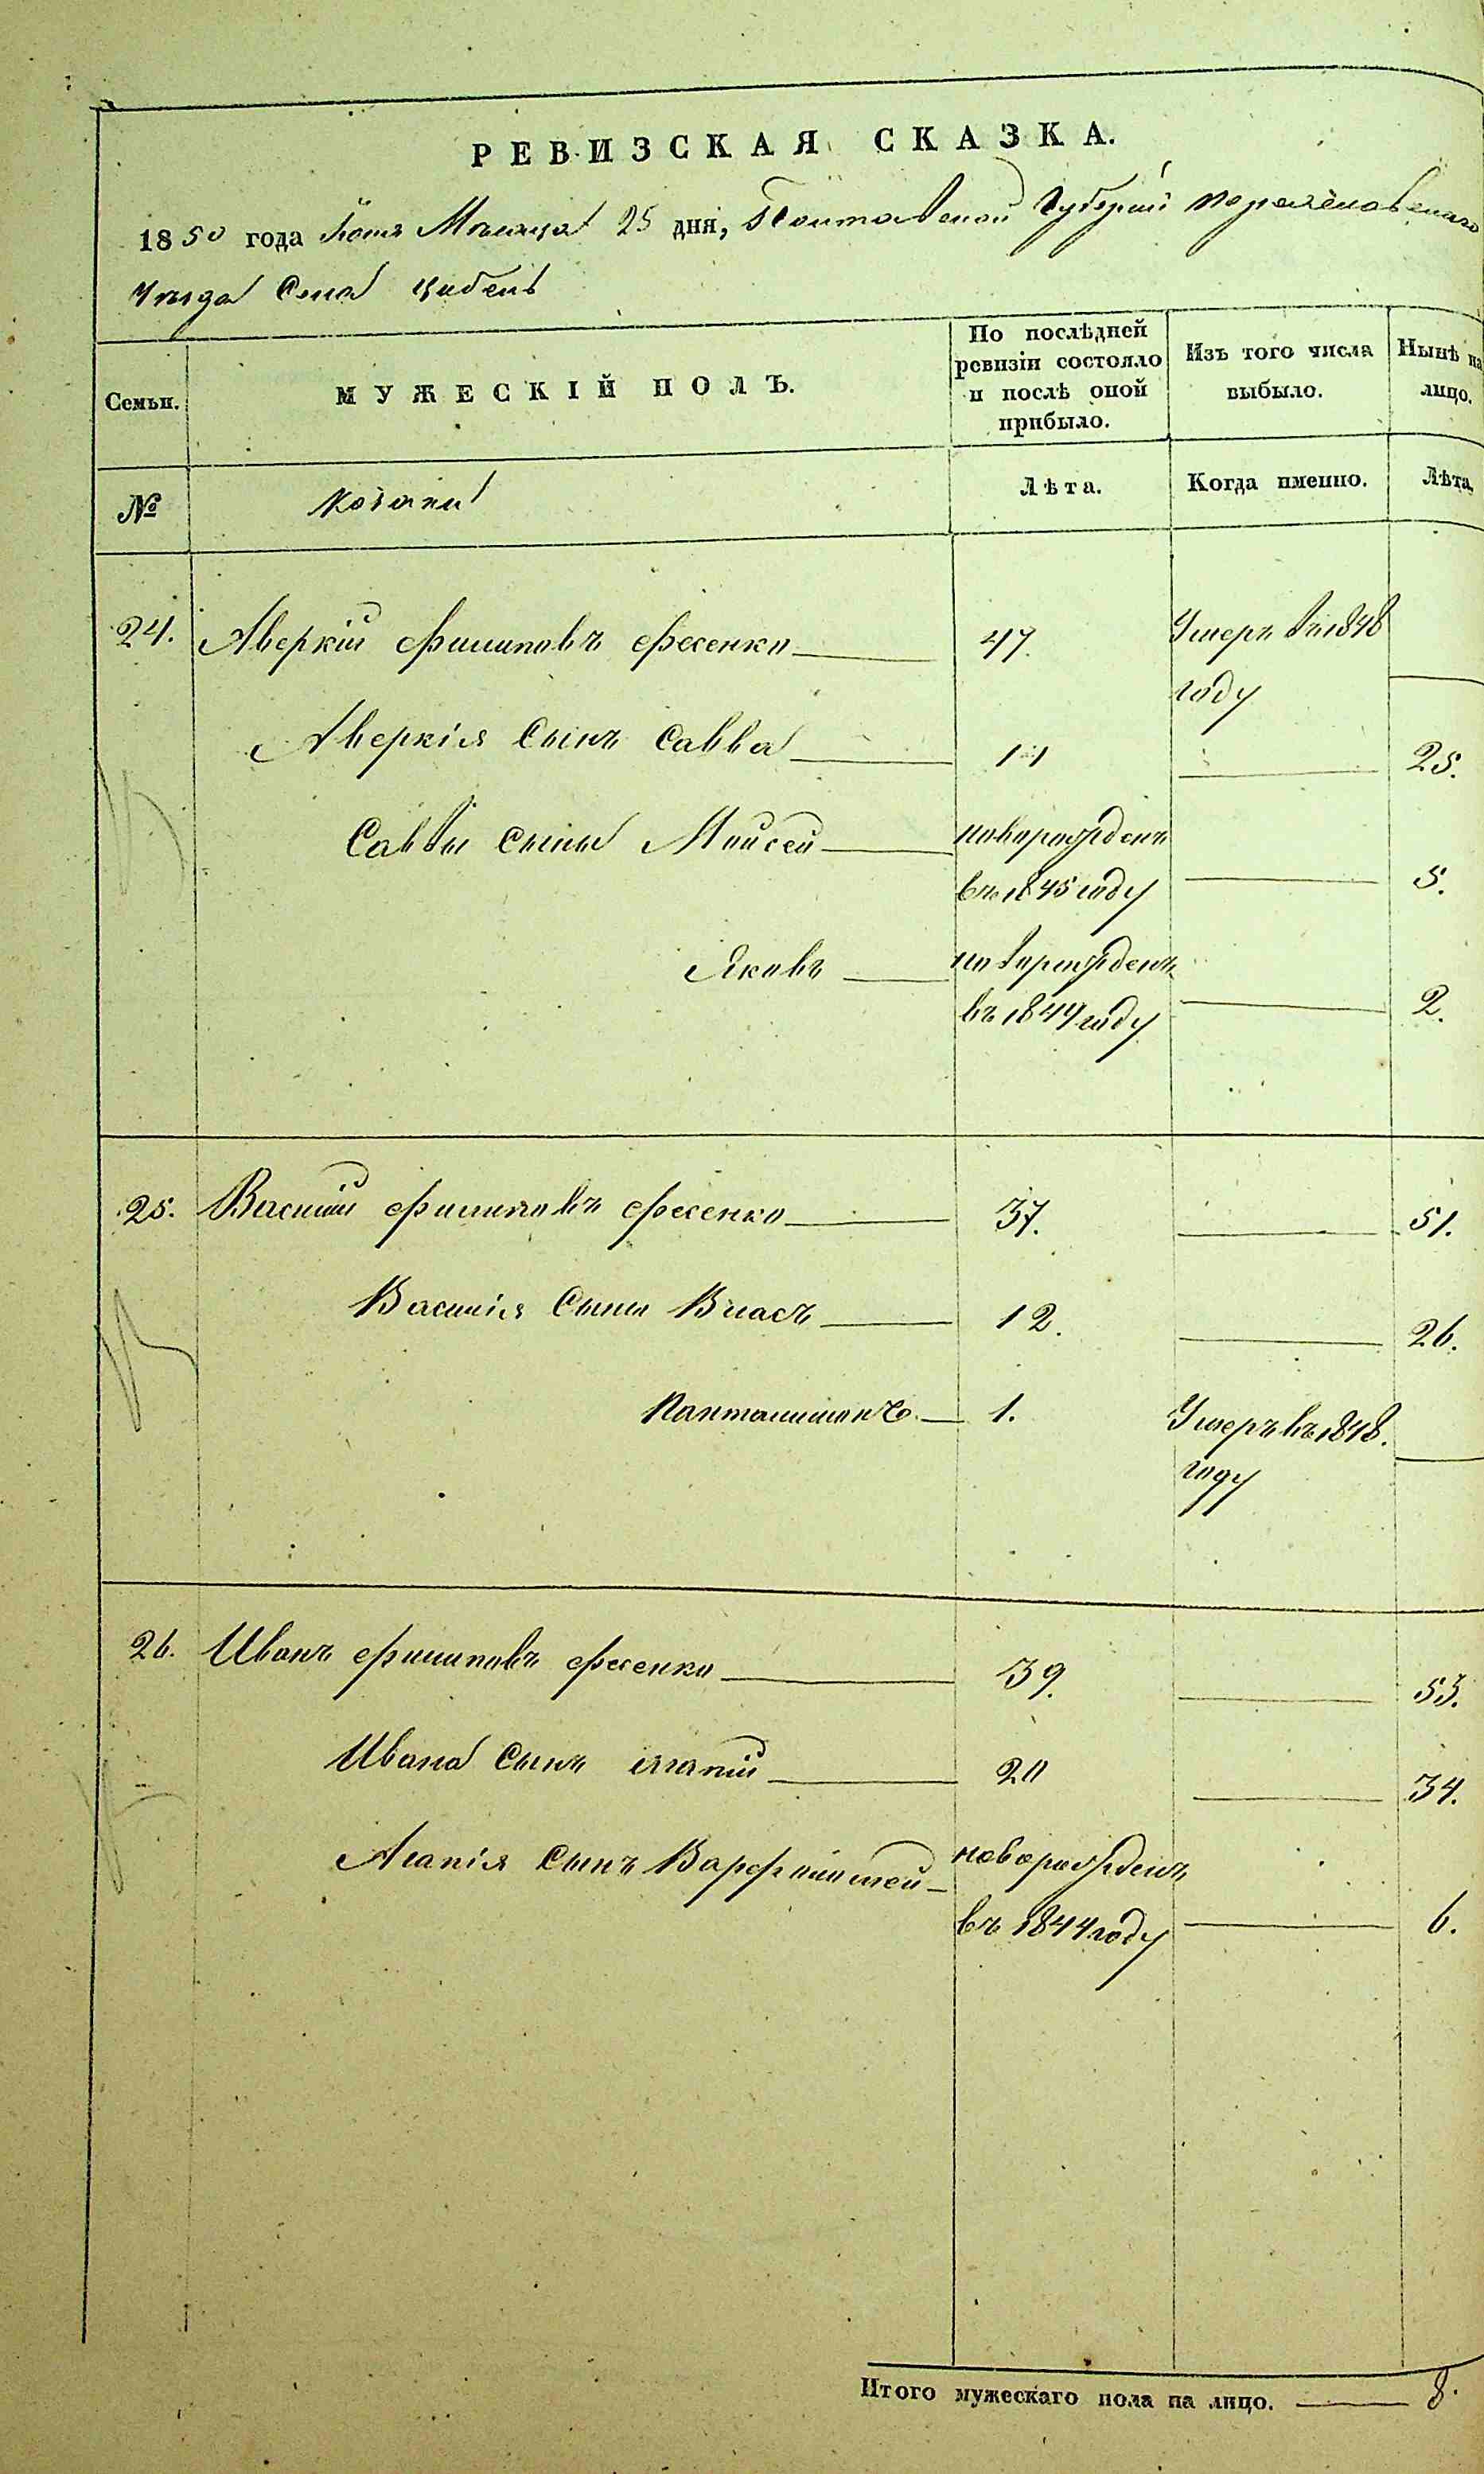 РЕВИЗСКАЯ СКАЗКА.
1850 года Юня Месяца 25 дня, Полтавской Губерніи Переяславскаго
Уезда Села Цибель
Семьи.
МУЖЕСКІЙ ПОЛЪ.
По послѣдней ревизіи состояло и послѣ оной прибыло.
Изъ того числа выбыло.
Нынѣ на лицо.
№
Козаки
Лѣта.
Когда именно.
Лѣта.
24. Аверкій Филиповъ Фесенко 47. Умеръ въ 1848
году
Аверкія Сынъ Савва 11 25.
Саввы Сыны Моисей новорожденъ
въ 1845 году 5.
Яковъ новорожденъ
въ 1849 году 2.
25. Василій Филиповъ Фесенко 37. 51.
Василія Сыны Власъ 12. 26.
Панталимонъ 1. Умеръ въ 1848.
году
26. Иванъ Филиповъ Фесенко 39. 53.
Ивана Сынъ Агапій 20 34.
Агапія Сынъ Варфоломей новорожденъ
въ 1844 году 6.
Итого мужескаго пола на лицо. 8.